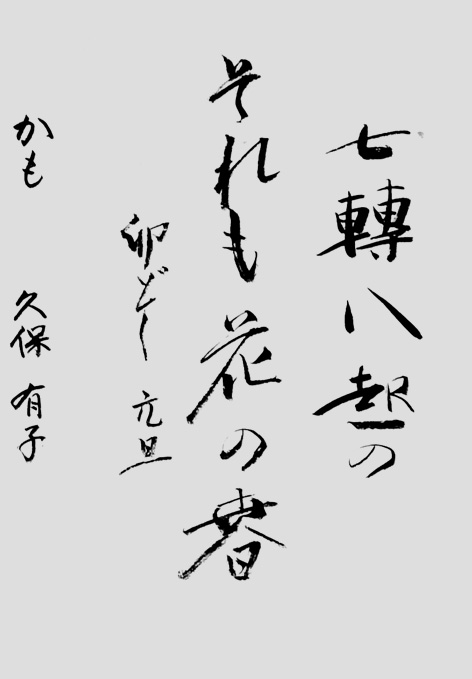 七轉八起の
それも花の春
卯どし 元旦
かも 久保 有子